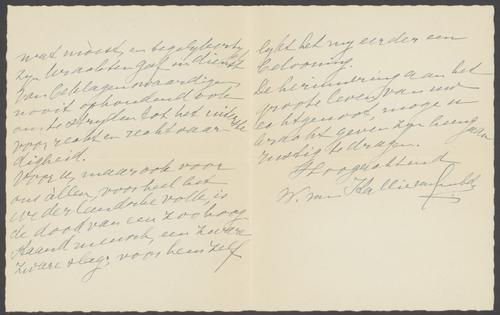 wat moest, en tegelijkertijd
zijn krachten gaf in dienst
van beklagenswaardigen,
nooit ophoudend ook
om te strijden tot het uiterste
voor recht en rechtvaar
digheid.
Voor u, maar ook voor
ons allen, voor heel het
Nederlandsche volk, is
de dood van een zoo hoog
staand mensch, een zware
zware slag, voor hem zelf
lijkt het my eerder een
belooning.
De herinnering aan het
groote leven van uw
echtgenoot, moge u
kracht geven zijn heengaan
rustig te dragen.
Hoogachtend
W. van